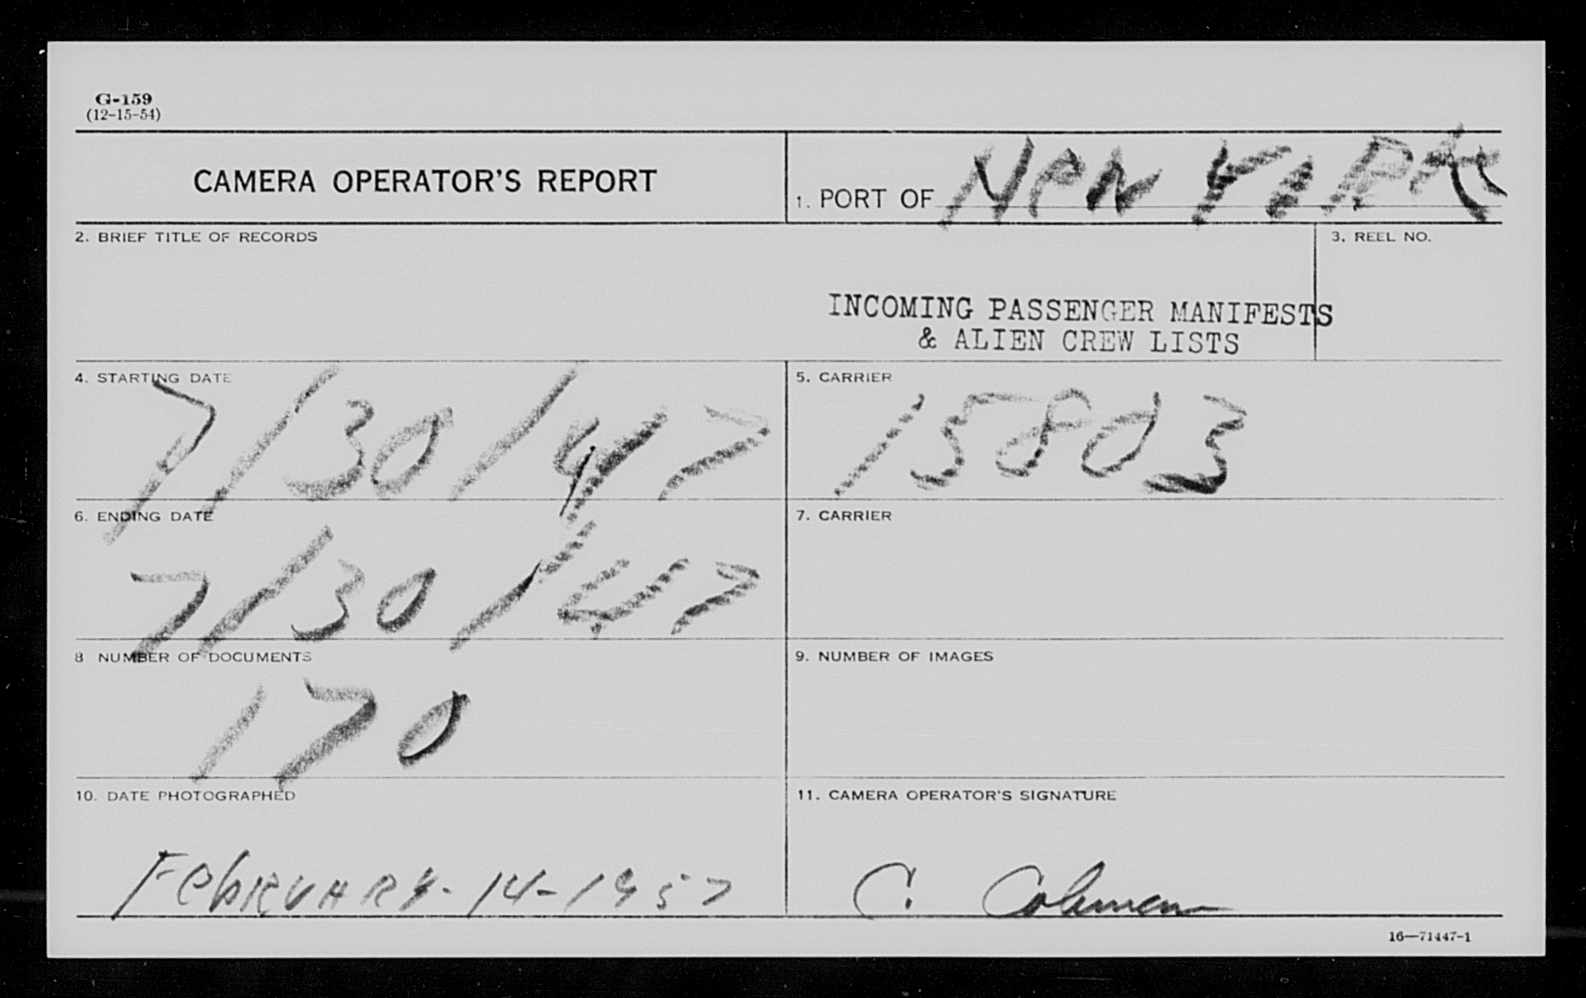 G-159
(12-15-54)
CAMERA OPERATOR'S REPORT
1. PORT OF NEW YORK
2. BRIEF TITLE OF RECORDS
3. REEL NO.
INCOMING PASSENGER MANIFESTS
& ALIEN CREW LISTS
4. STARTING DATE
7/30/47
5. CARRIER
15803
6. ENDING DATE
7/30/47
7. CARRIER
8 NUMBER OF DOCUMENTS
170
9. NUMBER OF IMAGES
10. DATE PHOTOGRAPHED
FEbRUARY-14-1957
11. CAMERA OPERATOR'S SIGNATURE
C. Coleman
16—71447-1